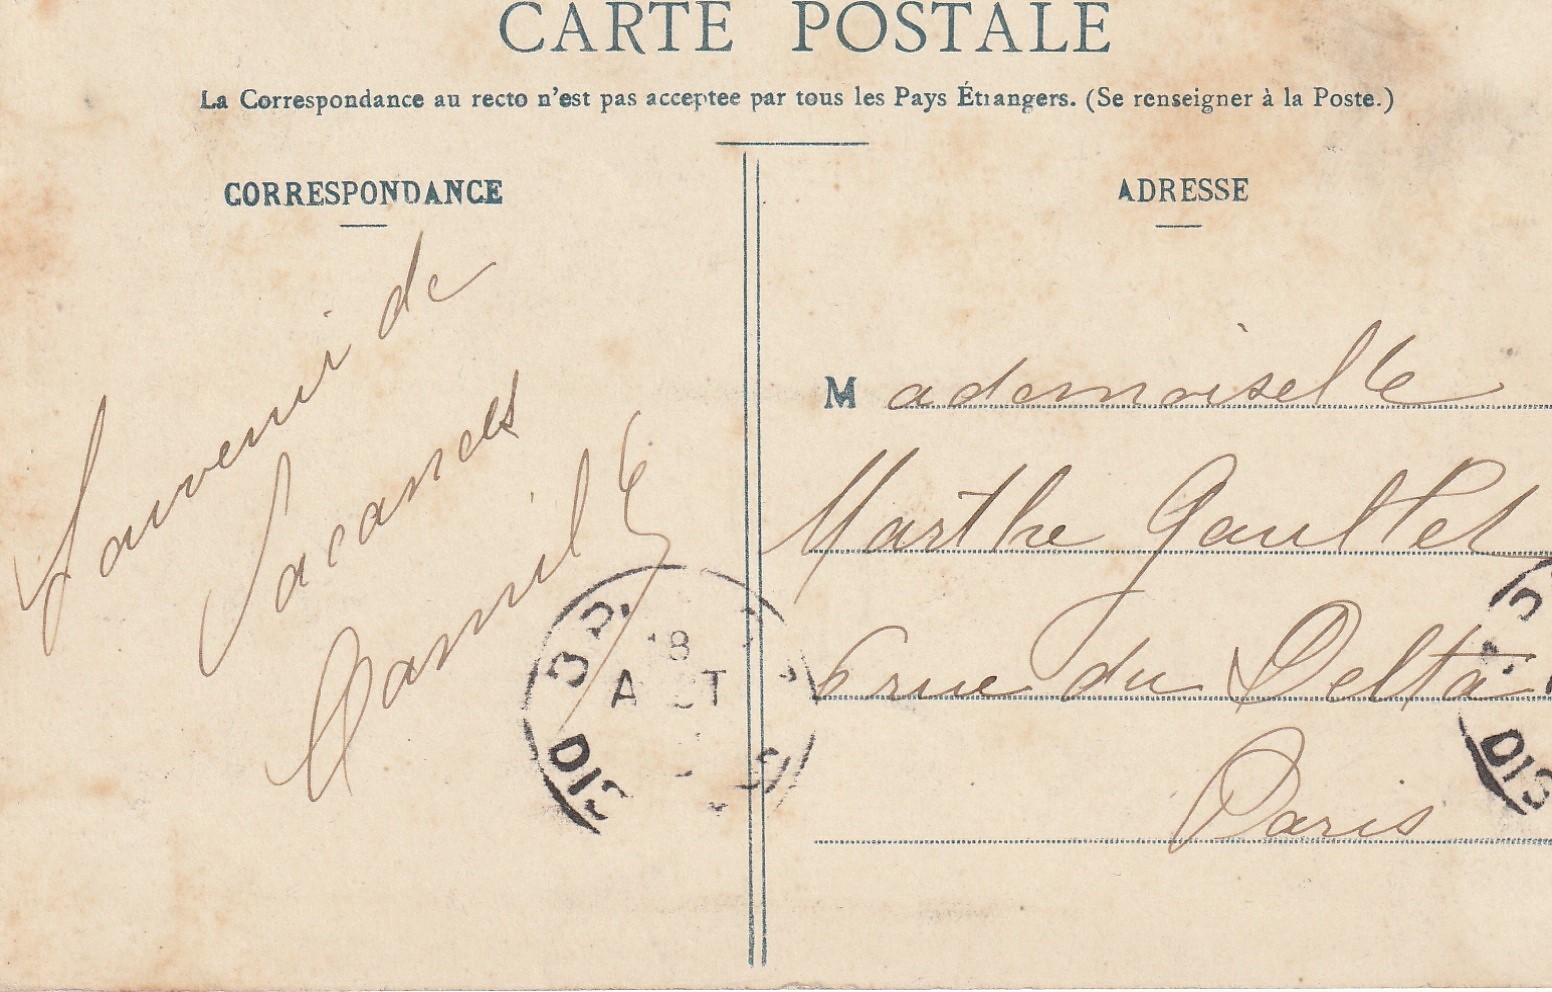 CARTE POSTALE
La Correspondance au recto n'est pas acceptee par tous les Pays Étrangers. (Se renseigner à la Poste.)
CORRESPONDANCE
ADRESSE
Souvenir de
Vacances
Camille
Mademoiselle
Marthe Gaultet
6 rue du Delta
Paris
18
DIS
DIS